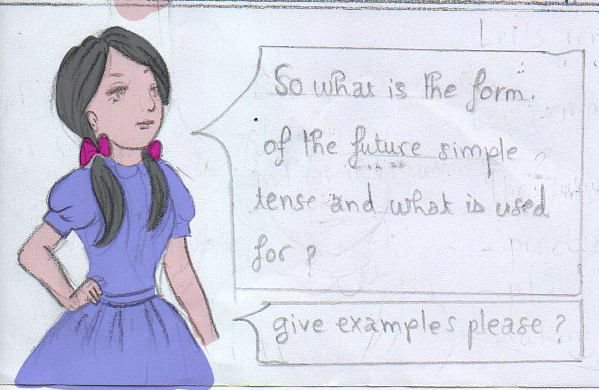 So what is the form.
of the future simple
tense and what is used
for ?
give examples please ?